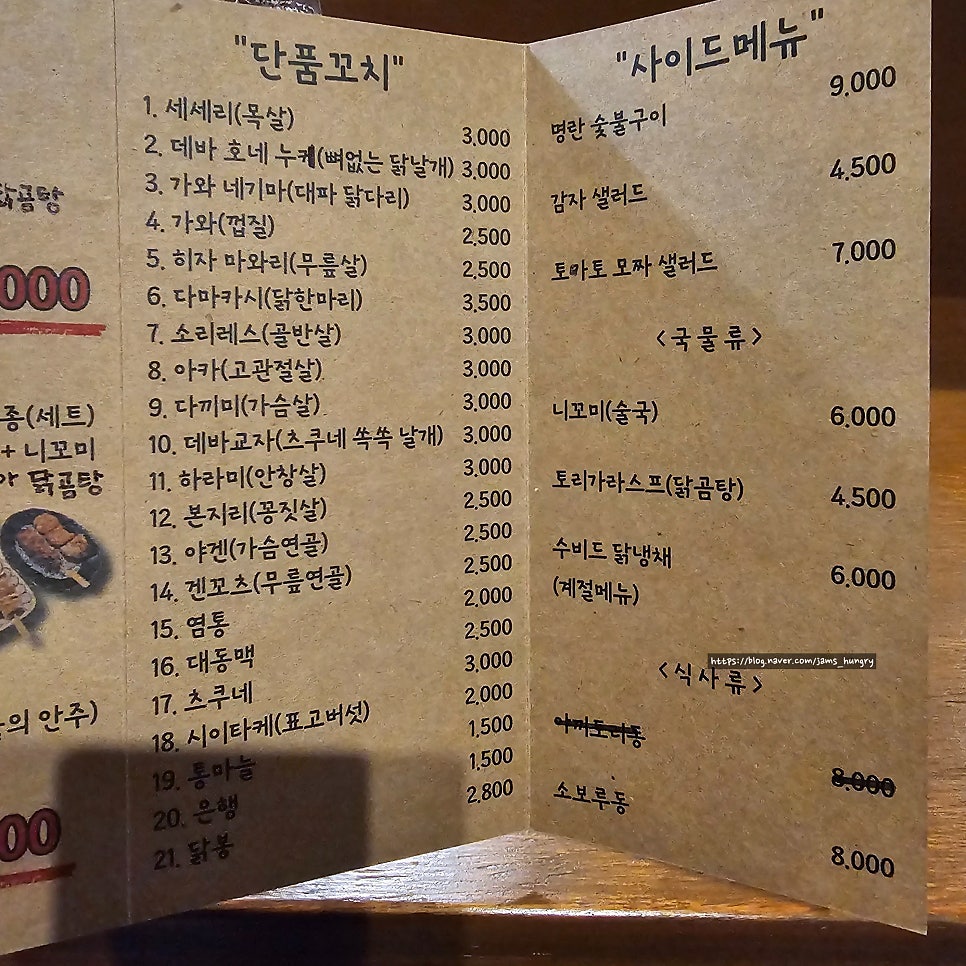 닭곰탕
000
종(세트)
+ 니꼬미
닭곰탕
의 안주)
00
"단품꼬치"
1. 세세리(목살) 3,000
2. 데바 호네 누케(뼈없는 닭날개) 3,000
3. 가와 네기마(대파 닭다리) 3,000
4. 가와(껍질) 2,500
5. 히자 마와리(무릎살) 2,500
6. 다마카시(닭한마리) 3,500
7. 소리레스(골반살) 3,000
8. 아카(고관절살) 3,000
9. 다끼미(가슴살) 3,000
10. 데바교자(츠쿠네 쏙쏙 날개) 3,000
11. 하라미(안창살) 3,000
12. 본지리(꽁짓살) 2,500
13. 야겐(가슴연골) 2,500
14. 겐꼬츠(무릎연골) 2,500
15. 염통 2,000
16. 대동맥 2,500
17. 츠쿠네 3,000
18. 시이타케(표고버섯) 2,000
19. 통마늘 1,500
20. 은행 1,500
21. 닭봉 2,800
"사이드메뉴"
명란 숯불구이 9,000
감자 샐러드 4,500
토마토 모짜 샐러드 7,000
<국물류>
니꼬미(술국) 6,000
토리가라스프(닭곰탕) 4,500
수비드 닭냉채 6,000
(계절메뉴)
https://blog.naver.com/jams_hungry
<식사류>
8,000
소보루동 8,000